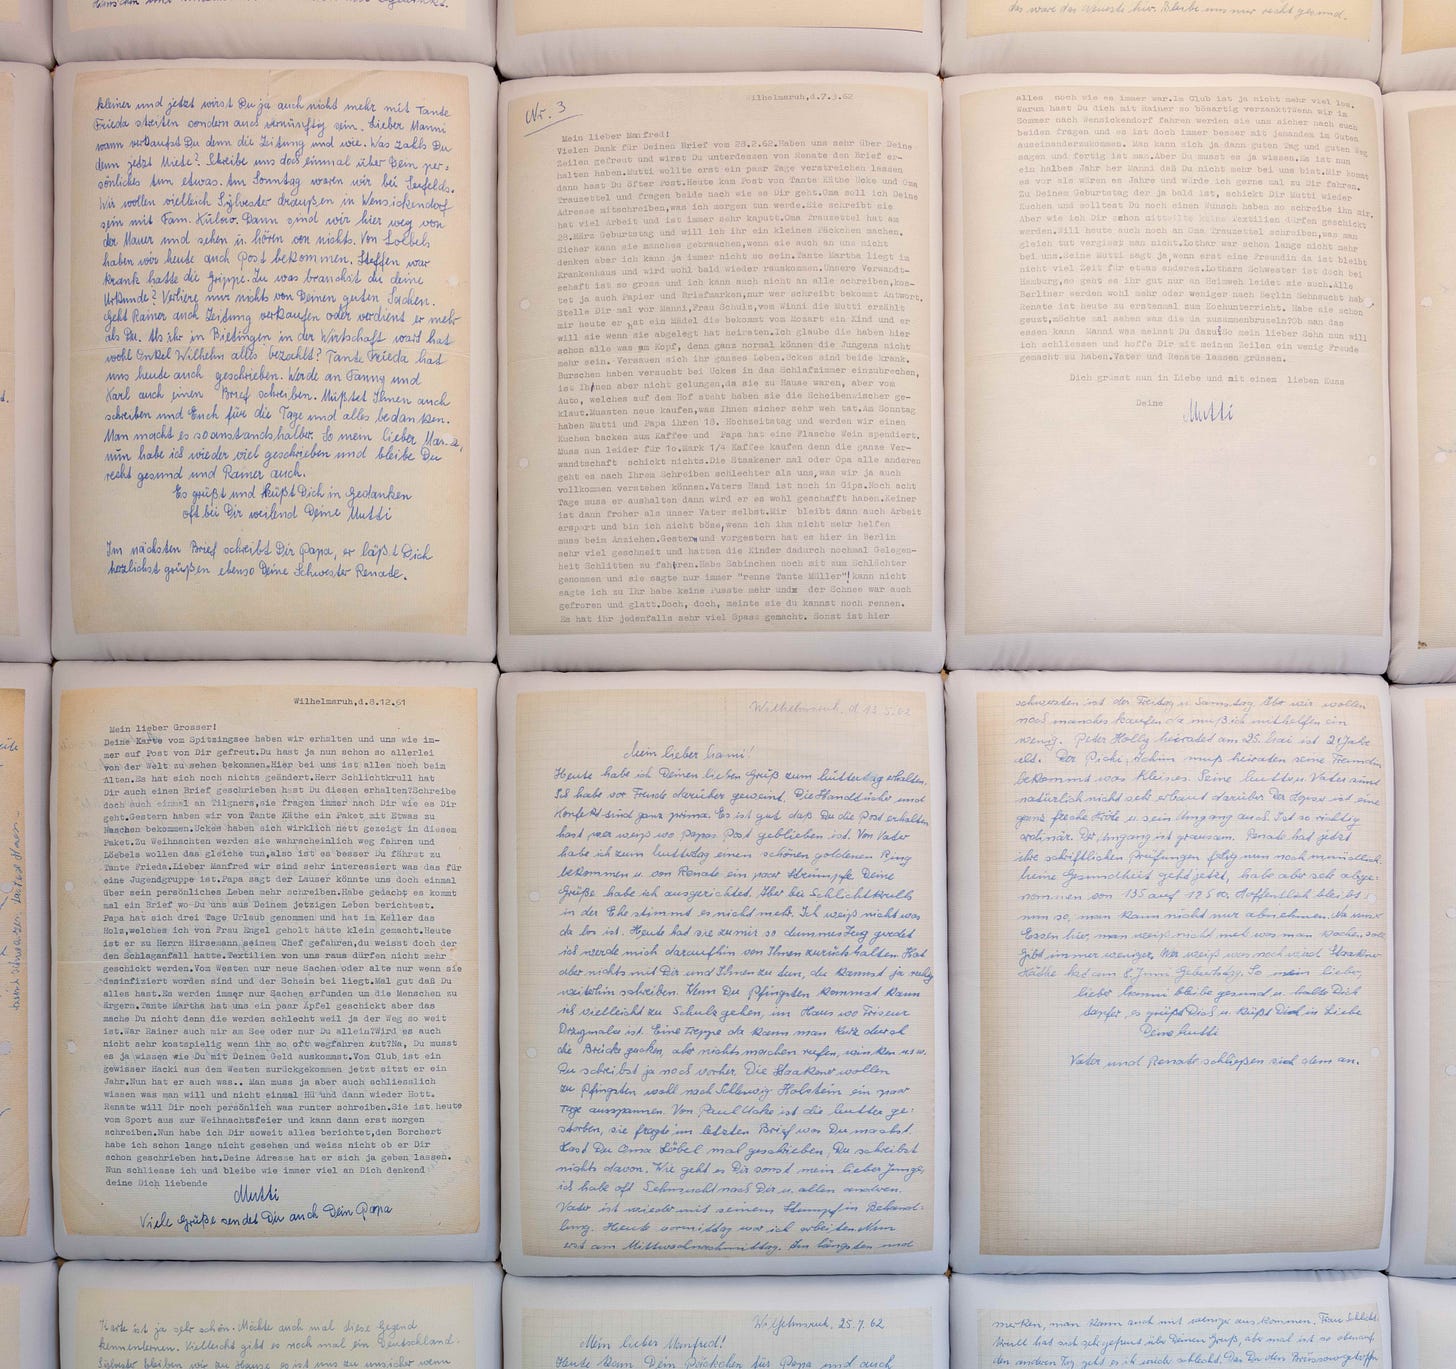 das wäre das Neueste hier. Bleibe uns nur recht gesund.
kleiner und jetzt wirst Du ja auch nicht mehr mit Tante
Frieda streiten sondern auch vernünftig sein. Lieber Manni
wann verkaufst Du denn die Zeitung und wie. Was zahlst Du
denn jetzt Miete? Schreibe uns doch einmal über Dein per-
sönliches tun etwas. Am Sonntag waren wir bei Seefelds.
Wir wollen vielleich Sylvester draußen in Wensickendorf
sein mit Fam. Dann sind wir hier weg von
der Mauer und sehen u. hören von nichts. Von Löbels
haben wir heute auch Post bekommen. Steffen war
krank hatte die Grippe. Zu was brauchst du deine
Urkunde? Verliere nur nichts von Deinen guten Sachen.
Geht Rainer auch Zeitung verkaufen oder verdient er mehr
als Du. Als ihr in Bietingen in der Wirtschaft ward hat
wohl Onkel Wilhelm alles bezahlt? Tante Frieda hat
uns heute auch geschrieben. Werde an Fanny und
Karl auch einen Brief schreiben. Müßtet Ihnen auch
schreiben und Euch für die Tage und alles bedanken.
Man macht es so anstandshalber. So mein lieber
nun habe ich wieder viel geschrieben und bleibe Du
recht gesund und Rainer auch.
Es grüßt und küßt Dich in Gedanken
oft bei Dir weilend Deine Mutti
Im nächsten Brief schreibt Dir Papa, er läßt Dich
herzlichst grüßen ebenso Deine Schwester Renate.
Nr. 3
Wilhelmsruh,d.7.3.62
Mein lieber Manfred!
Vielen Dank für Deinen Brief vom 28.2.62.Haben uns sehr über Deine
Zeilen gefreut und wirst Du unterdessen von Renate den Brief er-
halten haben.Mutti wollte erst ein paar Tage verstreichen lassen
dann hast Du öfter Post.Heute kam Post von Tante Käthe Ucke und Oma
Trauzettel und fragen beide nach wie es Dir geht.Oma soll ich Deine
Adresse mitschreiben,was ich morgen tun werde.Sie schreibt sie
hat viel Arbeit und ist immer sehr kaputt.Oma Trauzettel hat am
28.März Geburtstag und will ich ihr ein kleines Päckchen machen.
Sicher kann sie manches gebrauchen,wenn sie auch an uns nicht
denken aber ich kann ja immer nicht so sein.Tante Martha liegt im
Krankenhaus und wird wohl bald wieder rauskommen.Unsere Verwandt-
schaft ist so gross und ich kann auch nicht an alle schreiben,kos-
tet ja auch Papier und Briefmarken,nur wer schreibt bekommt Antwort.
Stelle Dir mal vor Manni,Frau Schulz,von Winni die Mutti erzählt
mir heute er hat ein Mädel die bekommt vom Mozart ein Kind und er
will sie wenn sie abgelegt hat heiraten.Ich glaube die haben hier
schon alle was am Kopf, denn ganz normal können die Jungens nicht
mehr sein. Versauen sich ihr ganzes Leben.Uckes sind beide krank.
Burschen haben versucht bei Uckes in das Schlafzimmer einzubrechen,
ist Ihnen aber nicht gelungen,da sie zu Hause waren, aber vom
Auto, welches auf dem Hof steht haben sie die Scheibenwischer ge-
klaut.Mussten neue kaufen,was Ihnen sicher sehr weh tat.Am Sonntag
haben Mutti und Papa ihren 18. Hochzeitstag und werden wir einen
Kuchen backen zum Kaffee und Papa hat eine Flasche Wein spendiert.
Muss nun leider für 10.Mark 1/4 Kaffee kaufen denn die ganze Ver-
wandtschaft schickt nichts.Die Staakener mal oder Opa alle anderen
geht es nach Ihrem Schreiben schlechter als uns,was wir ja auch
vollkommen verstehen können.Vaters Hand ist noch in Gips.Noch acht
Tage muss er aushalten dann wird er es wohl geschafft haben.Keiner
ist dann froher als unser Vater selbst.Mir bleibt dann auch Arbeit
erspart und bin ich nicht böse,wenn ich ihm nicht mehr helfen
muss beim Anziehen.Gestern und vorgestern hat es hier in Berlin
sehr viel geschneit und hatten die Kinder dadurch nochmal Gelegen-
heit Schlitten zu fahren.Habe Sabinchen noch mit zum Schlächter
genommen und sie sagte nur immer "renne Tante Müller"!kann nicht
sagte ich zu Ihr habe keine Pusste mehr und der Schnee war auch
gefroren und glatt.Doch, doch, meinte sie du kannst noch rennen.
Es hat ihr jedenfalls sehr viel Spass gemacht. Sonst ist hier
alles noch wie es immer war.Im Club ist ja nicht mehr viel los.
Warum hast Du dich mit Rainer so bösartig verzankt?Wenn wir im
Sommer nach Wensickendorf fahren werden sie uns sicher nach euch
beiden fragen und es ist doch immer besser mit jemandem im Guten
auseinanderzukommen. Man kann sich ja dann guten Tag und guten Weg
sagen und fertig ist man.Aber Du musst es ja wissen.Es ist nun
ein halbes Jahr her Manni daß Du nicht mehr bei uns bist.Mir kommt
es vor als wären es Jahre und würde ich gerne mal zu Dir fahren.
Zu Deinem Geburtstag der ja bald ist, schickt Dir Mutti wieder
Kuchen und solltest Du noch einen Wunsch haben so schreibe ihn mir.
Aber wie ich Dir schon mitteilte keine Textilien dürfen geschickt
werden.Will heute auch noch an Oma Trauzettel schreiben,was man
gleich tut vergisst man nicht.Lothar war schon lange nicht mehr
bei uns.Seine Mutti sagt ja,wenn erst eine Freundin da ist bleibt
nicht viel Zeit für etwas anderes.Lothars Schwester ist doch bei
Hamburg,so geht es ihr gut nur an Heimweh leidet sie auch.Alle
Berliner werden wohl mehr oder weniger nach Berlin Sehnsucht haben.
Renate ist heute zu erstenmal zum Kochunterricht. Habe sie schon
geust,möchte mal sehen was die da zusammenbruseln?Ob man das
essen kann. Manni was meinst Du dazu?So mein lieber Sohn nun will
ich schliessen und hoffe Dir mit meinen Zeilen ein wenig Freude
gemacht zu haben.Vater und Renate lassen grüssen.
Dich grüsst nun in Liebe und mit einem lieben Kuss
Deine
Mutti
Wilhelmsruh,d.8.12.61
Mein lieber Grosser!
Deine Karte vom Spitzingsee haben wir erhalten und uns wie im-
mer auf Post von Dir gefreut.Du hast ja nun schon so allerlei
von der Welt zu sehen bekommen.Hier bei uns ist alles noch beim
Alten.Es hat sich noch nichts geändert.Herr Schlichtkrull hat
Dir auch einen Brief geschrieben hast Du diesen erhalten?Schreibe
doch auch einmal an Tilgners,sie fragen immer nach Dir wie es Dir
geht.Gestern haben wir von Tante Käthe ein Paket mit Etwas zu
Naschen bekommen.Uckes haben sich wirklich nett gezeigt in diesem
Paket.Zu Weihnachten werden sie wahrscheinlich weg fahren und
Löbels wollen das gleiche tun,also ist es besser Du fährst zu
Tante Frieda.Lieber Manfred wir sind sehr interessiert was das für
eine Jugendgruppe ist.Papa sagt der Lauser könnte uns doch einmal
über sein persönliches Leben mehr schreiben.Habe gedacht es kommt
mal ein Brief wo Du uns aus Deinem jetzigen Leben berichtest.
Papa hat sich drei Tage Urlaub genommen und hat im Keller das
Holz,welches ich von Frau Engel geholt hatte klein gemacht.Heute
ist er zu Herrn Hirsemann,seinem Chef gefahren,du weisst doch der
den Schlaganfall hatte.Textilien von uns raus dürfen nicht mehr
geschickt werden.Von Westen nur neue Sachen oder alte nur wenn sie
desinfiziert worden sind und der Schein bei liegt.Mal gut daß Du
alles hast.Es werden immer nur Sachen erfunden um die Menschen zu
ärgern.Tante Martha hat uns ein paar Äpfel geschickt aber das
mache Du nicht denn die werden schlecht weil ja der Weg so weit
ist.War Rainer auch mir am See oder nur Du allein?Wird es auch
nicht sehr kostspielig wenn ihr so oft wegfahren tut?Na, Du musst
es ja wissen wie Du mit Deinem Geld auskommst.Vom Club ist ein
gewisser Hacki aus dem Westen zurückgekommen jetzt sitzt er ein
Jahr.Nun hat er auch was.. Man muss ja aber auch schliesslich
wissen was man will und nicht einmal Hü und dann wieder Hott.
Renate will Dir noch persönlich was runter schreiben.Sie ist heute
vom Sport aus zur Weihnachtsfeier und kann dann erst morgen
schreiben.Nun habe ich Dir soweit alles berichtet,den Borchert
habe ich schon lange nicht gesehen und weiss nicht ob er Dir
schon geschrieben hat.Deine Adresse hat er sich ja geben lassen.
Nun schliesse ich und bleibe wie immer viel an Dich denkend
deine Dich liebende
Mutti
Viele Grüße sendet Dir auch Dein Papa
Wilhelmsruh, d 13.5.62
Mein lieber Manni!
Heute habe ich Deinen lieben Gruß zum Muttertag erhalten.
Ich habe vor Freude darüber geweint. Die Handtücher und
Konfekt sind ganz prima. Es ist gut daß Du die Post erhalten
hast wer weiß wo Papas Post geblieben ist. Von Vater
habe ich zum Muttertag einen schönen goldenen Ring
bekommen u. von Renate ein paar Strümpfe. Deine
Grüße habe ich ausgerichtet. Aber bei Schlichtkrulls
in der Ehe stimmt es nicht mehr. Ich weiß nicht was
da los ist. Heute hat sie zu mir so dummes Zeug geredet
ich werde mich daraufhin von Ihnen zurückhalten. Hat
aber nichts mit Dir und Ihnen zu tun, du kannst ja ruhig
weiterhin schreiben. Wenn Du Pfingsten kommst kann
ich vielleicht zu Schulz gehen, im Haus wo Friseur
ist. Eine Treppe da kann man kurz durch
die Brücke gucken, aber nichts machen rufen, winken u.s.w.
Du schreibst ja noch vorher. Die Staakener wollen
zu Pfingsten wohl nach Schleswig Holstein ein paar
Tage ausspannen. Von Paul Ucke ist die Mutter ge-
storben, sie fragte im letzten Brief was Du machst.
Hast Du Oma Löbel mal geschrieben, Du schreibst
nichts davon. Wie geht es Dir sonst mein lieber Junge,
ich habe oft Sehnsucht nach Dir u. allen anderen.
Vater ist wieder mit seinem Stumpf in Behand-
lung. Heute vormittag war ich arbeiten. Nun
erst am Mittwochnachmittag. Am längsten und
schwersten ist der Freitag u. Samstag. Aber wir wollen
noch manches kaufen da muß ich mithelfen ein
wenig. Peter Holly heiratet am 25. Mai ist 21 Jahre
alt. Der Achim muß heiraten seine Freundin
bekommt was kleines. Seine Mutter u. Vater sind
natürlich nicht sehr erbaut darüber. Der ist eine
ganz freche Kröte u. sein Umgang auch. Ist so richtig
ordinär. Der Umgang ist grausam. Renate hat jetzt
ihre schriftlichen Prüfungen folgt nun noch mündlich.
Meine Gesundheit geht jetzt, habe aber sehr abge-
nommen von 135 auf 125 Hoffentlich bleibt
nun so, man kann nicht nur abnehmen. Na unser
Essen hier, man weiß nicht mehr was man kochen soll
Gibt immer weniger. Wer weiß was noch wird. Staakener
Käthe hat am 8. Juni Geburtstag. So mein lieber,
lieber Manni bleibe gesund u. halte Dich
tapfer, es grüßt Dich u. küßt Dich in Liebe
Deine Mutti
Vater und Renate schließen sich dem an.
Karte ist ja sehr schön. Möchte auch mal diese Gegend
kennenlernen. Vielleicht gibt es noch mal ein Deutschland.
Sylvester bleiben wir zu Hause es ist uns zu unsicher wenn
Wilhelmsruh, 25.7.62
Mein lieber Manfred!
Heute kam Dein Päckchen für Papa und auch
merken, man kann auch mit weniger auskommen. Frau Schlicht-
krull hat sich sehr gefreut über Deinen Gruß, aber mal ist so obenauf
den anderen Tag geht es ihr wieder schlecht.